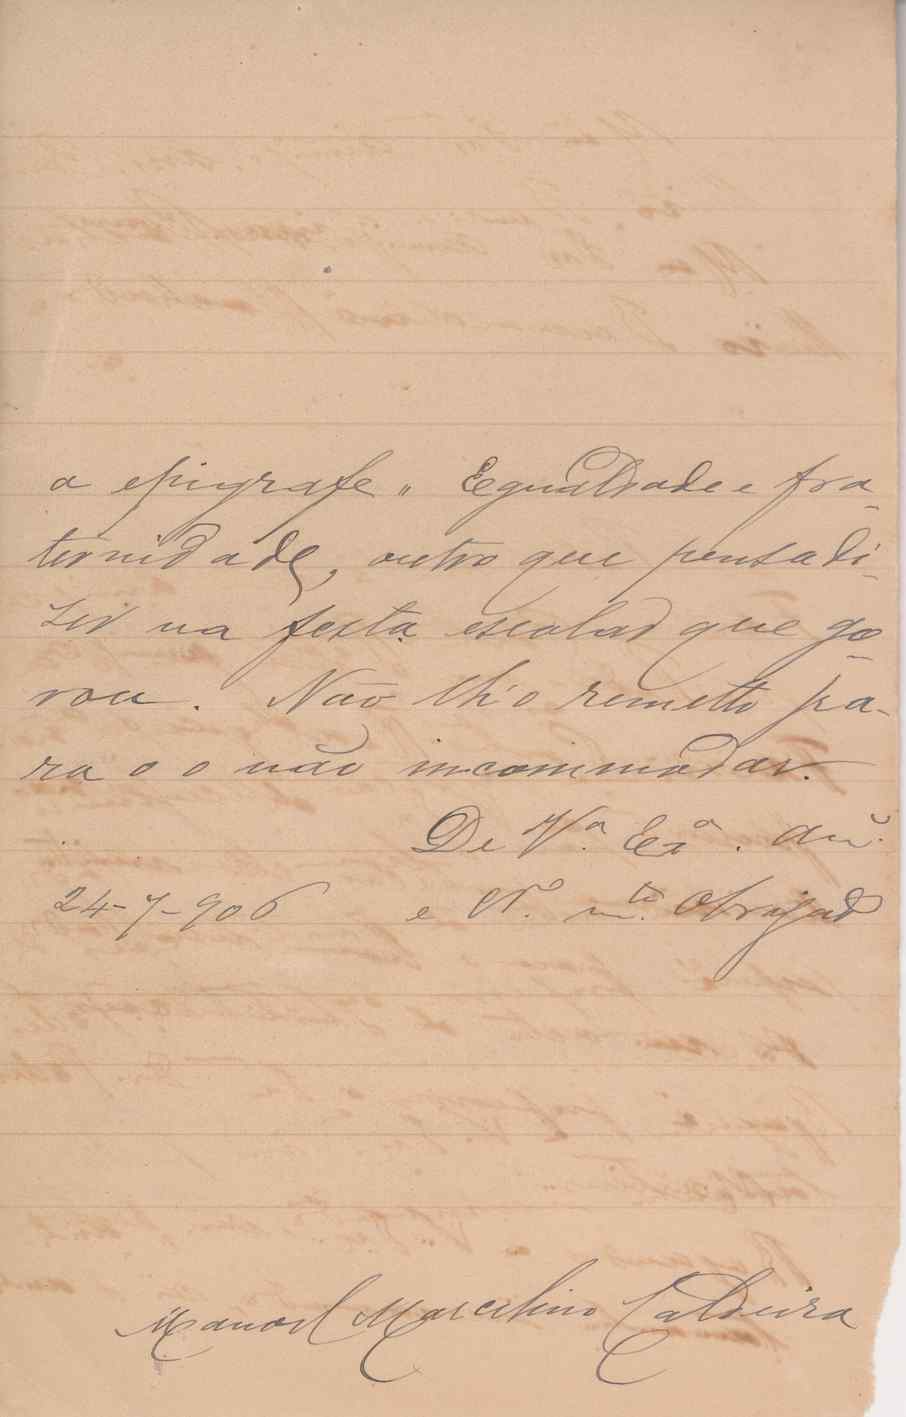 a epigrafe „ Egualdade e fra-
ternidade, outro que pensa di-
zer na festa escolar que go-
rou. Não lh'o remetto pa-
ra o não incommodar.
De V.ª Ex.ª
24-7-906 e m.to Obrigad
Manoel Marcelino Caldeira